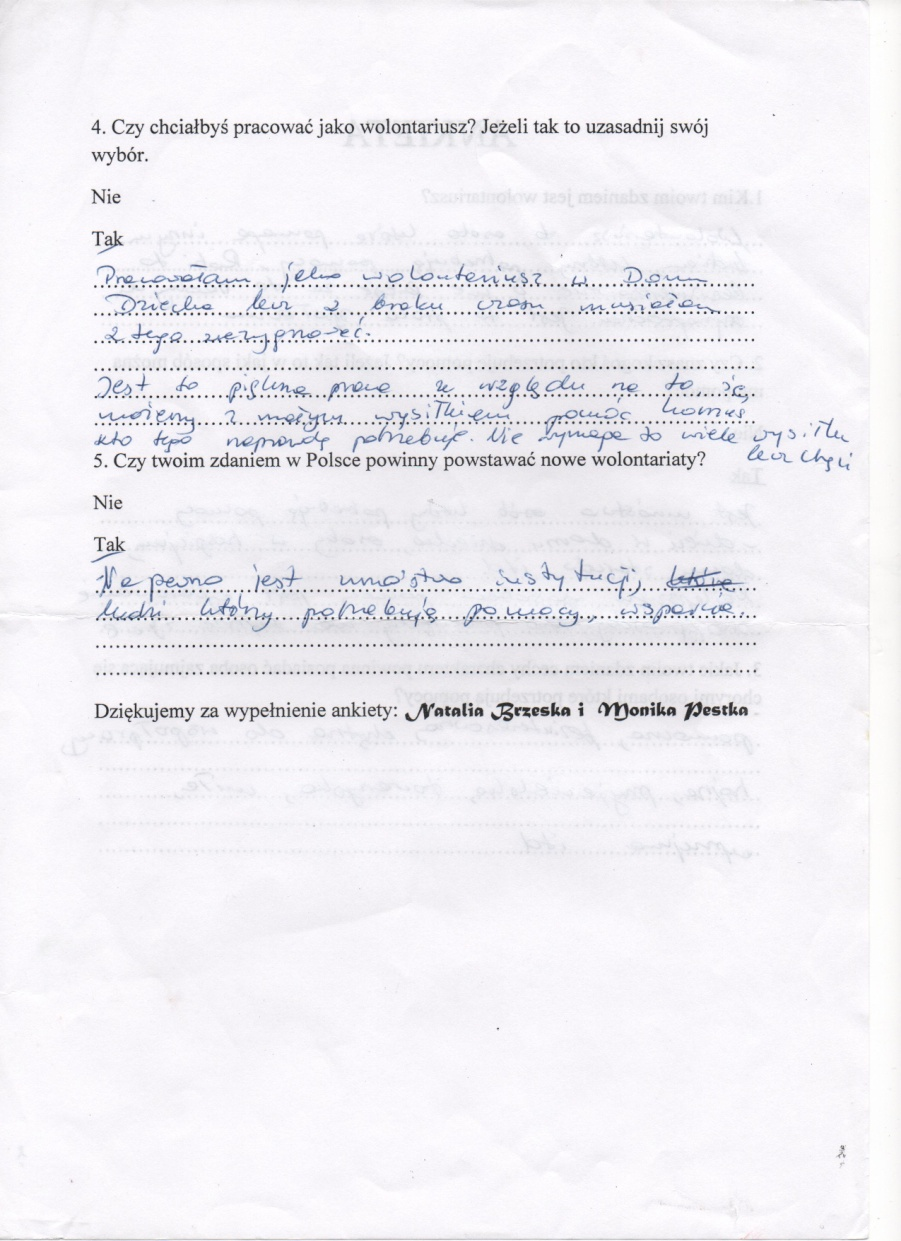 4. Czy chciałbyś pracować jako wolontariusz? Jeżeli tak to uzasadnij swój
wybór.
Nie
Tak
Pracowałam jako wolontariusz w Domu
Dziecka lecz z braku czasu musiałam
z tego zrezygnować.
Jest to piękna praca ze względu na to że
możemy z małym wysiłkiem pomóc komuś
kto tego naprawdę potrzebuje. Nie wymaga to wiele wysiłku
lecz chęci
5. Czy twoim zdaniem w Polsce powinny powstawać nowe wolontariaty?
Nie
Tak
Na pewno jest mnóstwo instytucji, które
ludzi którzy potrzebują pomocy, wsparcia.
Dziękujemy za wypełnienie ankiety: Natalia Brzeska i Monika Pestka